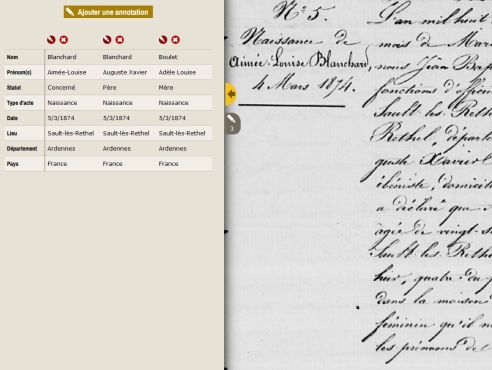 Ajouter une annotation
Nom Blanchard Blanchard Boulet
Prénom(s) Aimée-Louise Auguste Xavier Adèle Louise
Statut Concerné Père Mère
Type d'acte Naissance Naissance Naissance
Date 5/3/1874 5/3/1874 5/3/1874
Lieu Sault-lès-Rethel Sault-lès-Rethel Sault-lès-Rethel
Département Ardennes Ardennes Ardennes
Pays France France France
3
N° 5.
Naissance de
Aimée Louise Blanchard,
4 Mars 1874.
L'an mil huit
mois de Mars
nous Jean Bap
fonctions d'offici
Sault les Rethe
Rethel, départe
guste Xavier
ébéniste, domicili
a déclaré que
agée de vingt-s
Sault les Reth
hier, quatre du
dans la maison
féminin qu'il
les prénoms de